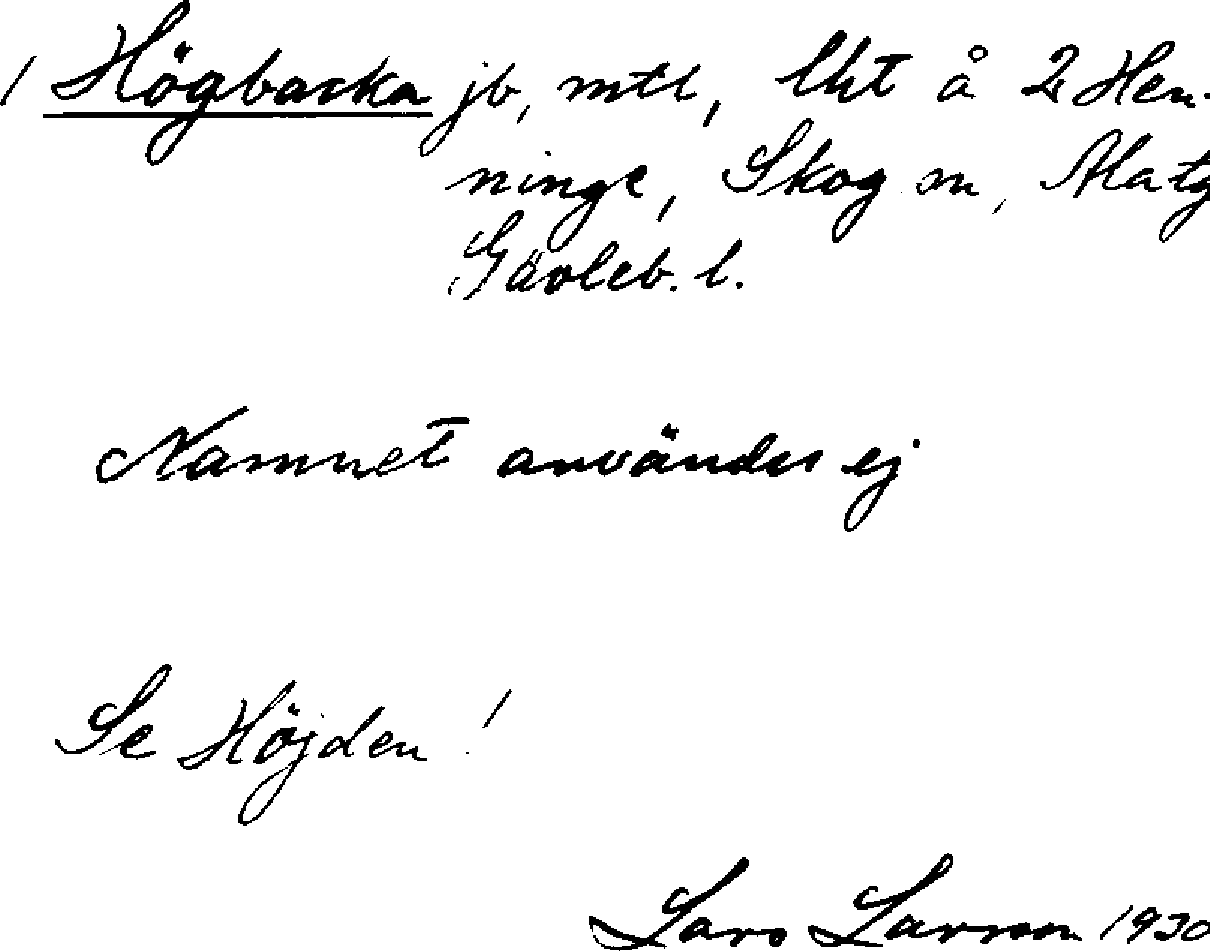 / Högbacka jb, mtl, lht å 2 Hen-
ninge, Skog sn, Matg
Gävleb. l.
Namnet användes ej
Se Höjden !
Lars Larsson 1930